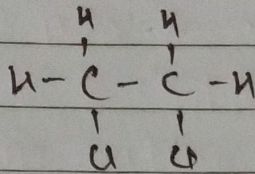 H H
H - C - C - H
Cl Cl